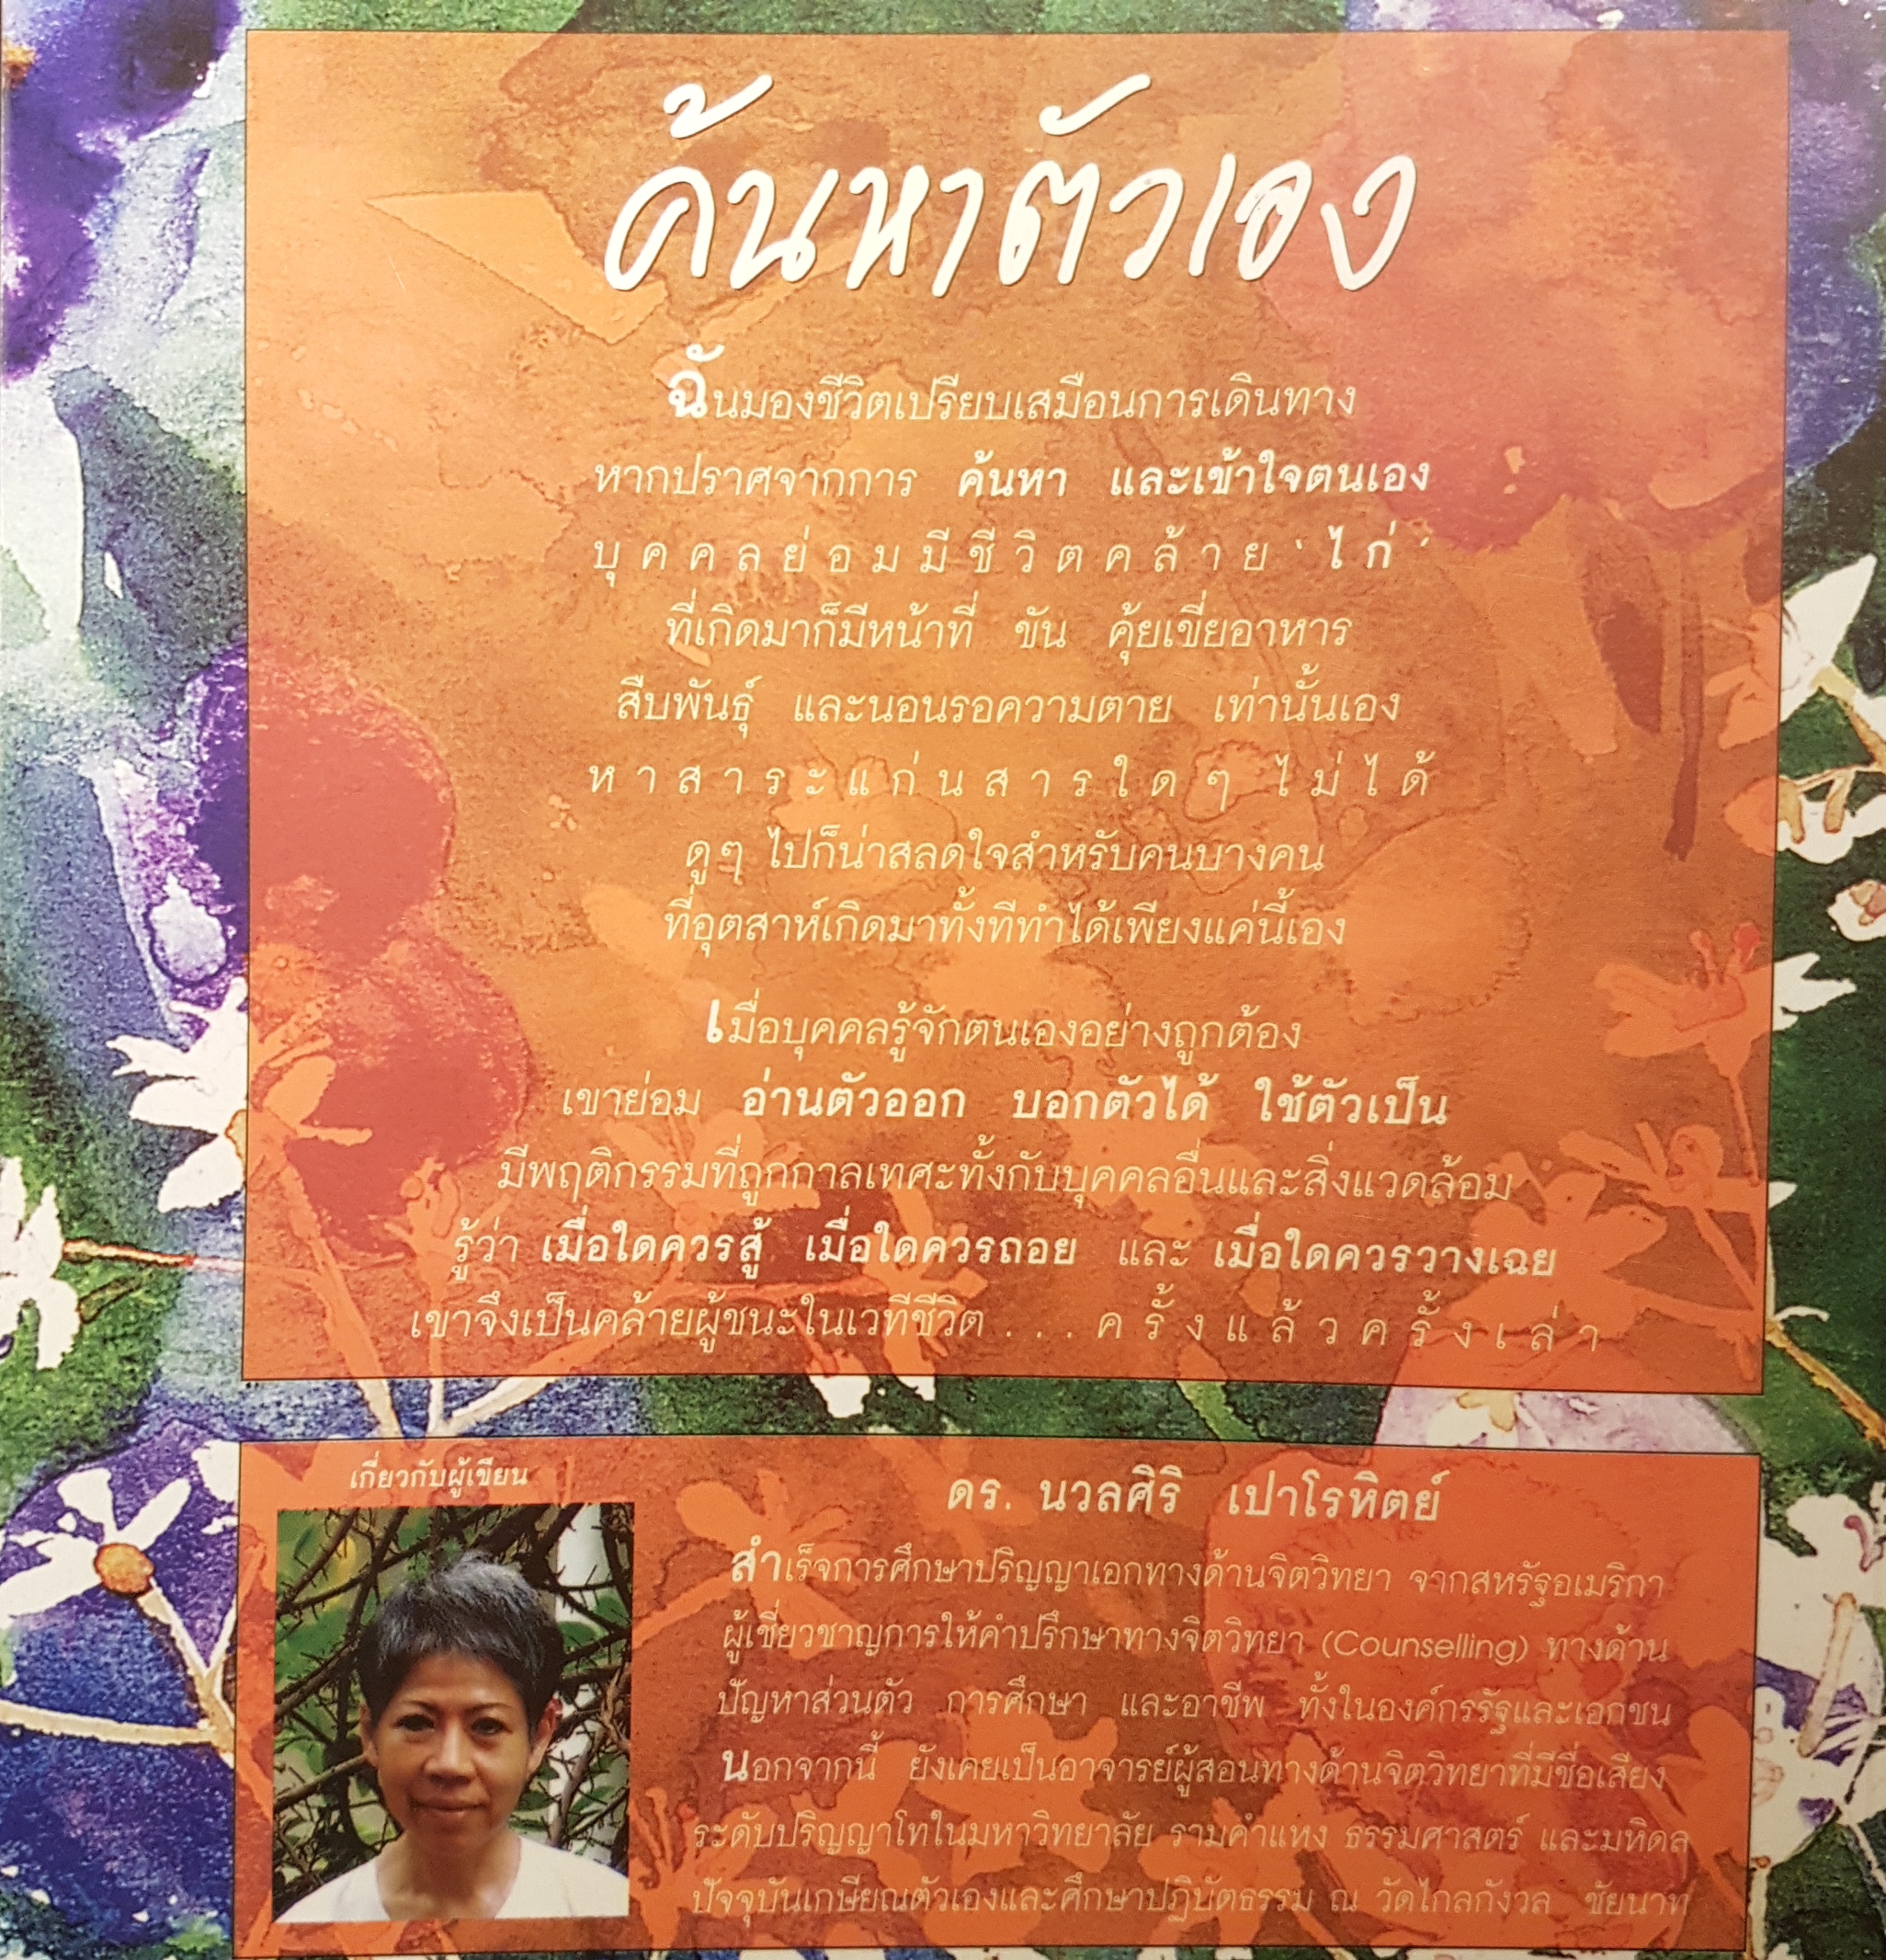 ค้นหาตัวเอง
ฉันมองชีวิตเปรียบเสมือนการเดินทาง
หากปราศจากการ ค้นหา และเข้าใจตนเอง
บุคคลย่อมมีชีวิตคล้าย 'ไก่'
ที่เกิดมาก็มีหน้าที่ ขัน คุ้ยเขี่ยอาหาร
สืบพันธุ์ และนอนรอความตาย เท่านั้นเอง
หาสาระแก่นสารใดๆ ไม่ได้
ดูๆ ไปก็น่าสลดใจสำหรับคนบางคน
ที่อุตสาห์เกิดมาทั้งทีทำได้เพียงแค่นี้เอง
เมื่อบุคคลรู้จักตนเองอย่างถูกต้อง
เขาย่อม อ่านตัวออก บอกตัวได้ ใช้ตัวเป็น
มีพฤติกรรมที่ถูกกาลเทศะทั้งกับบุคคลอื่นและสิ่งแวดล้อม
รู้ว่า เมื่อใดควรสู้ เมื่อใดควรถอย และ เมื่อใดควรวางเฉย
เขาจึงเป็นคล้ายผู้ชนะในเวทีชีวิต . . . ครั้งแล้วครั้งเล่า
เกี่ยวกับผู้เขียน
ดร. นวลศิริ เปาโรหิตย์
สำเร็จการศึกษาปริญญาเอกทางด้านจิตวิทยา จากสหรัฐอเมริกา
ผู้เชี่ยวชาญการให้คำปรึกษาทางจิตวิทยา (Counselling) ทางด้าน
ปัญหาส่วนตัว การศึกษา และอาชีพ ทั้งในองค์กรรัฐและเอกชน
นอกจากนี้ ยังเคยเป็นอาจารย์ผู้สอนทางด้านจิตวิทยาที่มีชื่อเสียง
ระดับปริญญาโทในมหาวิทยาลัย รามคำแหง ธรรมศาสตร์ และมหิดล
ปัจจุบันเกษียณตัวเองและศึกษาปฏิบัตธรรม ณ วัดไกลกังวล ชัยนาท